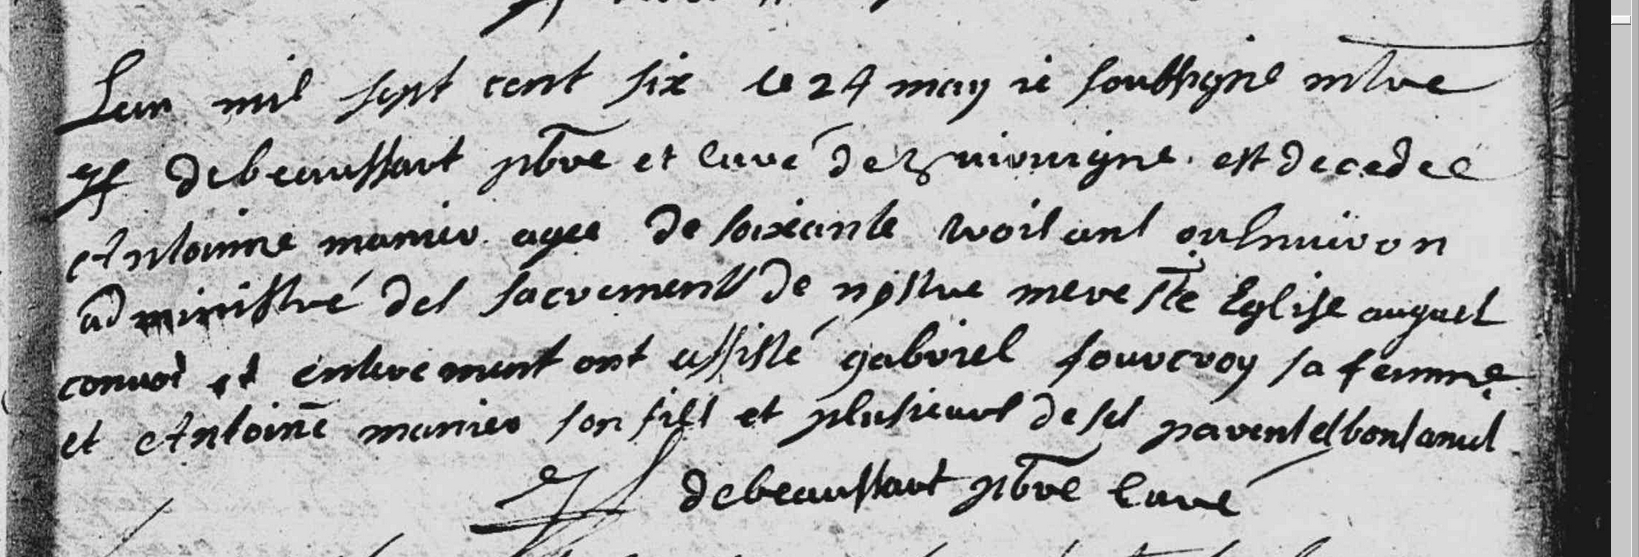 Lan mil sept cent six le 24 may ie soubsigné mtre
debeaussart pbre et curé de est decedeé
Antoinne manier agee de soixante trois ans ou enuiron
administré des sacrements de nostre mere ste Eglise auquel
conuoi et enterement ont assisté gabriel fourcroy sa femme
et Antoine manier son fils et plusieurs de ses parents et bons amis
debeaussart pbre curé